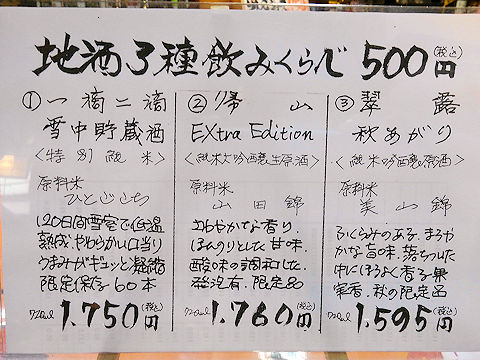 地酒3種飲みくらべ 500円(税込)
①一滴二滴
雪中貯蔵酒
<特別純米>
原料米
ひとごこち
120日間雪室で低温
熟成。やわらかい口当り
うまみがギュッと凝縮
限定保存60本
720ml 1,750円(税込)
②帰山
EXtra Edition
<純米大吟醸生原酒>
原料米
山田錦
さわやかな香り。
ほんのりとした甘味。
酸味の調和した
発泡有。限定80
720ml 1,760円(税込)
③翠露
秋あがり
<純米吟醸原酒>
原料米
美山錦
ふくらみのある、まろや
かな旨味。落ちついた
中にほうよく香る果
実香。秋の限定品
720ml 1,595円(税込)